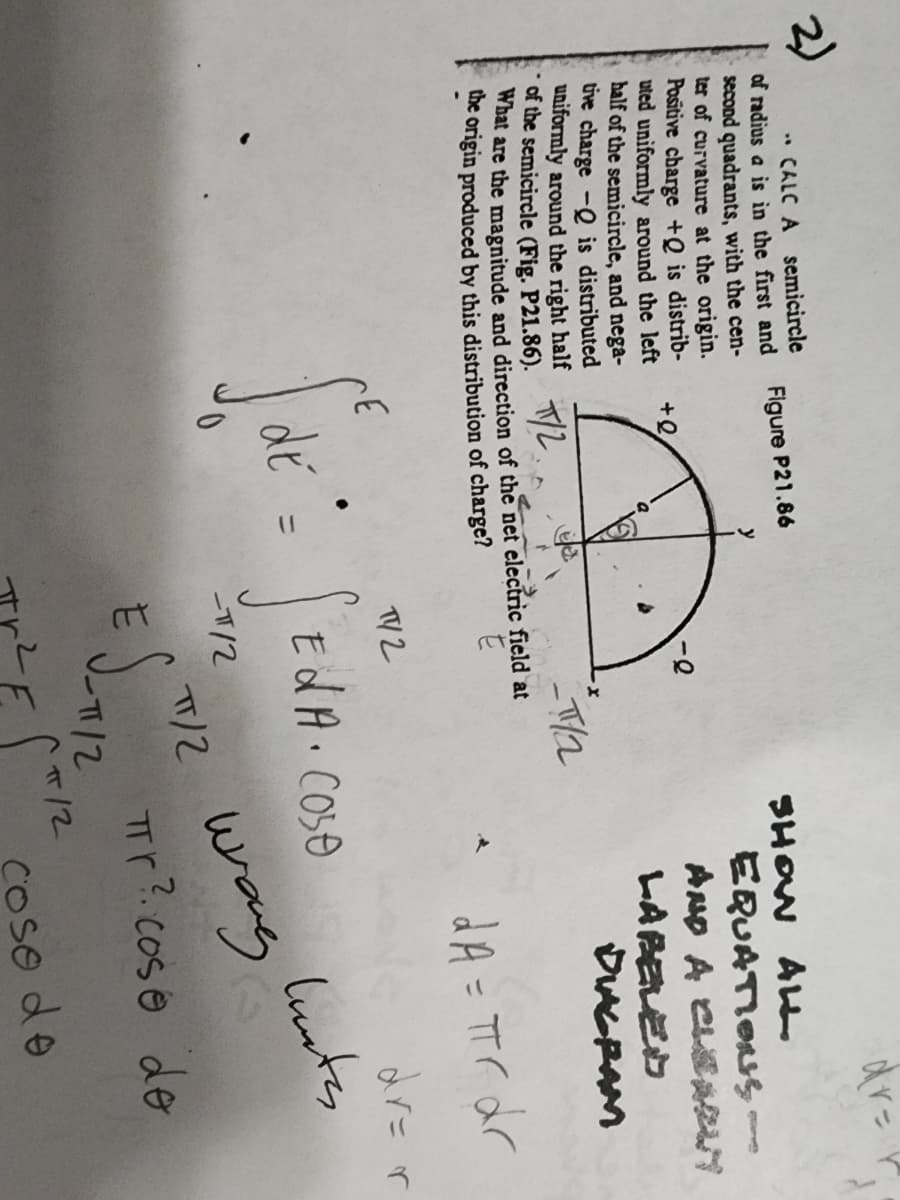 2)
.. CALC A semicircle
of radius a is in the first and
second quadrants, with the cen-
ter of curvature at the origin.
Positive charge +Q is distrib-
uted uniformly around the left
half of the semicircle, and nega-
tive charge −Q is distributed
uniformly around the right half
of the semicircle (Fig. P21.86).
What are the magnitude and direction of the net electric field at
the origin produced by this distribution of charge?
Figure P21.86
y
+Q
−Q
a
x
π/2
-π/2
E
SHOW ALL
EQUATIONS —
AND A CLEARLY
LABELED
DIAGRAM
dr =
* dA = πr dr
dr = r
∫₀ᴱ dE = ∫ E dA · cosθ
π/2
-π/2
wrong limits
E ∫ πr². cosθ dθ
π/2
-π/2
πr² E ∫ cosθ dθ
π/2